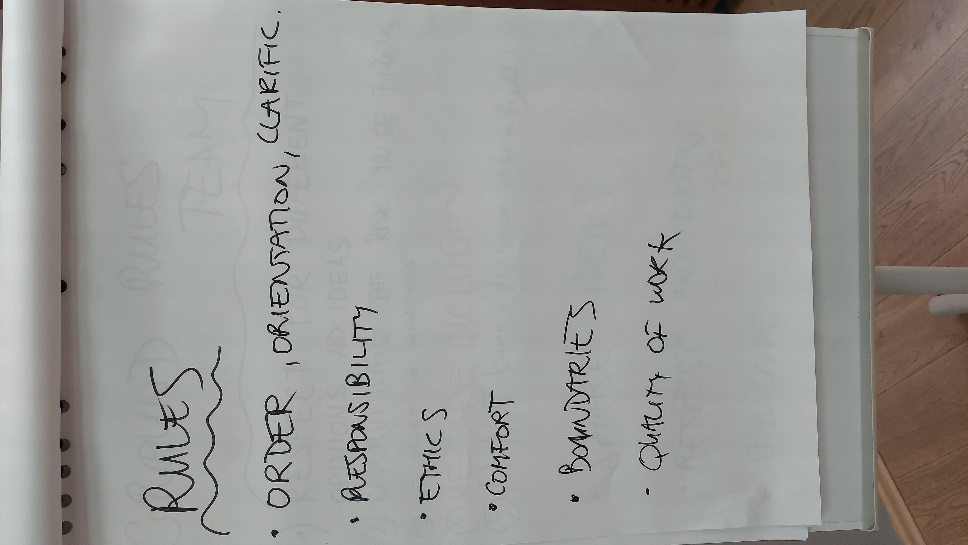 RULES
• ORDER, ORIENTATION, CLARIFIC.
• RESPONSIBILITY
• ETHICS
• COMFORT
• BOUNDARIES
- QUALITY OF WORK
RULES
TEAM